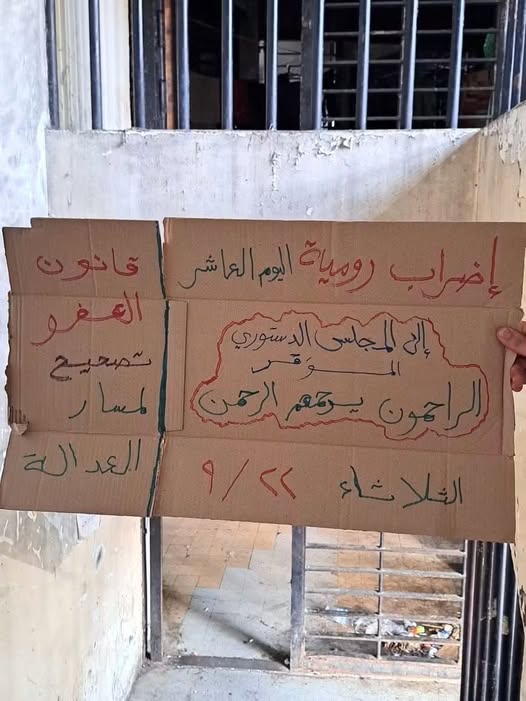 إضراب رومية اليوم العاشر
إلى المجلس الدستوري
الموقر
الراحمون يرحمهم الرحمن
الثلاثاء ٩/٢٢
قانون
العفو
تصحيح
لمسار
العدالة